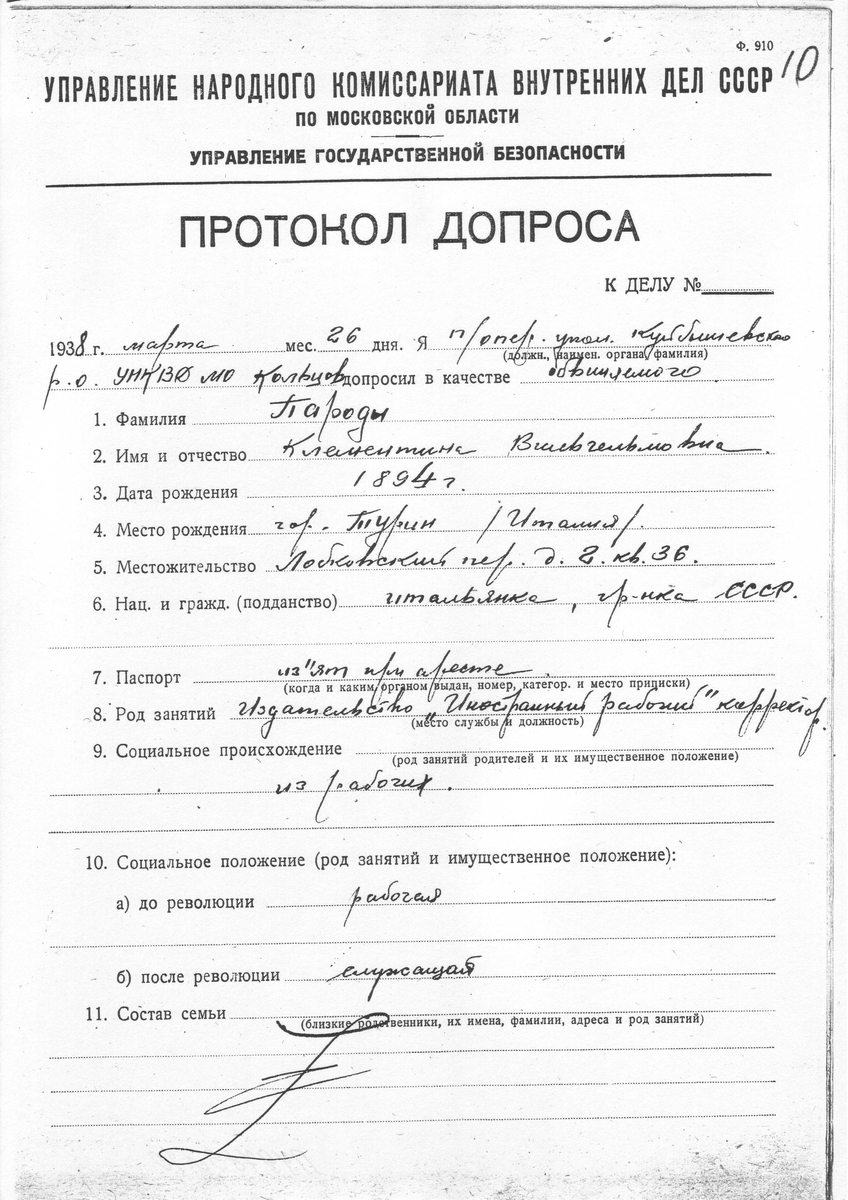 Ф. 910
10
УПРАВЛЕНИЕ НАРОДНОГО КОМИССАРИАТА ВНУТРЕННИХ ДЕЛ СССР
ПО МОСКОВСКОЙ ОБЛАСТИ
УПРАВЛЕНИЕ ГОСУДАРСТВЕННОЙ БЕЗОПАСНОСТИ
ПРОТОКОЛ ДОПРОСА
К ДЕЛУ №
1938 г. марта мес. 26 дня. Я п/опер. упол. Куйбышевско
(должн., наимен. органа, фамилия)
р.о. УНКВД МО Кольцов допросил в качестве обвиняемого
1. Фамилия Пароди
2. Имя и отчество Клементина Вильгельмовна.
3. Дата рождения 1894 г.
4. Место рождения гор. Турин /Италия/.
5. Местожительство Лобковский пер. д. 2. кв. 36.
6. Нац. и гражд. (подданство) итальянка, гр-нка СССР.
7. Паспорт из"ят при аресте.
(когда и каким органом выдан, номер, категор. и место приписки)
8. Род занятий Издательство „Иностранный рабочий" корректор.
(место службы и должность)
9. Социальное происхождение
(род занятий родителей и их имущественное положение)
из рабочих.
10. Социальное положение (род занятий и имущественное положение):
а) до революции рабочая
б) после революции служащая
11. Состав семьи
(близкие родственники, их имена, фамилии, адреса и род занятий)